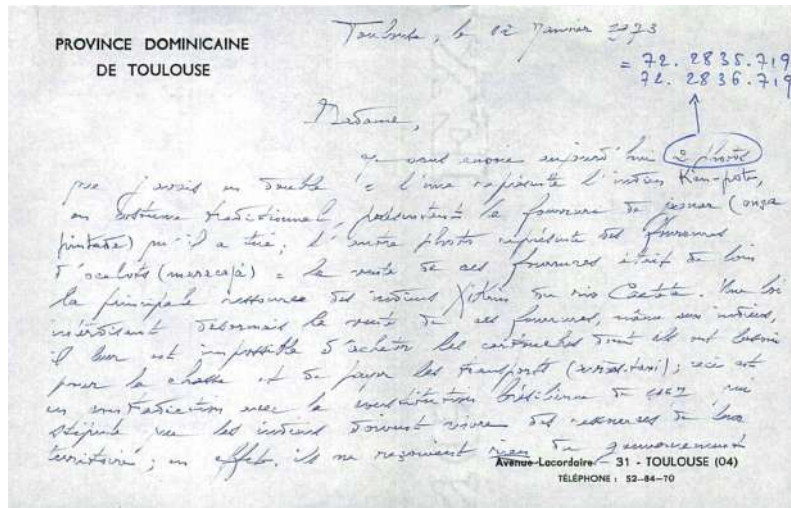 PROVINCE DOMINICAINE
DE TOULOUSE
Toulouse, le 02 Janvier 1973
= 72. 2835.719
72. 2836.719
Madame,
Je vous envoie aujourd'hui 2 photos
que j'avais en double = l'une représente l'indien
en costume traditionnel, présentant la fourrure de jaguar (onça
pintada) qu'il a tué ; l'autre photo représente des fourrures
d'ocelots (maracajá) = la vente de ces fourrures était de loin
la principale ressource des indiens Xikrin du rio Caeteté. Une loi
interdisant désormais la vente de ces fourrures, même aux indiens,
il leur est impossible d'acheter les cartouches dont ils ont besoin
pour la chasse et de payer les transports ; ceci est
en contradiction avec la constitution brésilienne de 1967, qui
stipule que les indiens doivent vivre des ressources de leur
territoire ; en effet, ils ne reçoivent rien du gouvernement
Avenue Lacordaire — 31 - TOULOUSE (04)
TÉLÉPHONE : 52-84-70